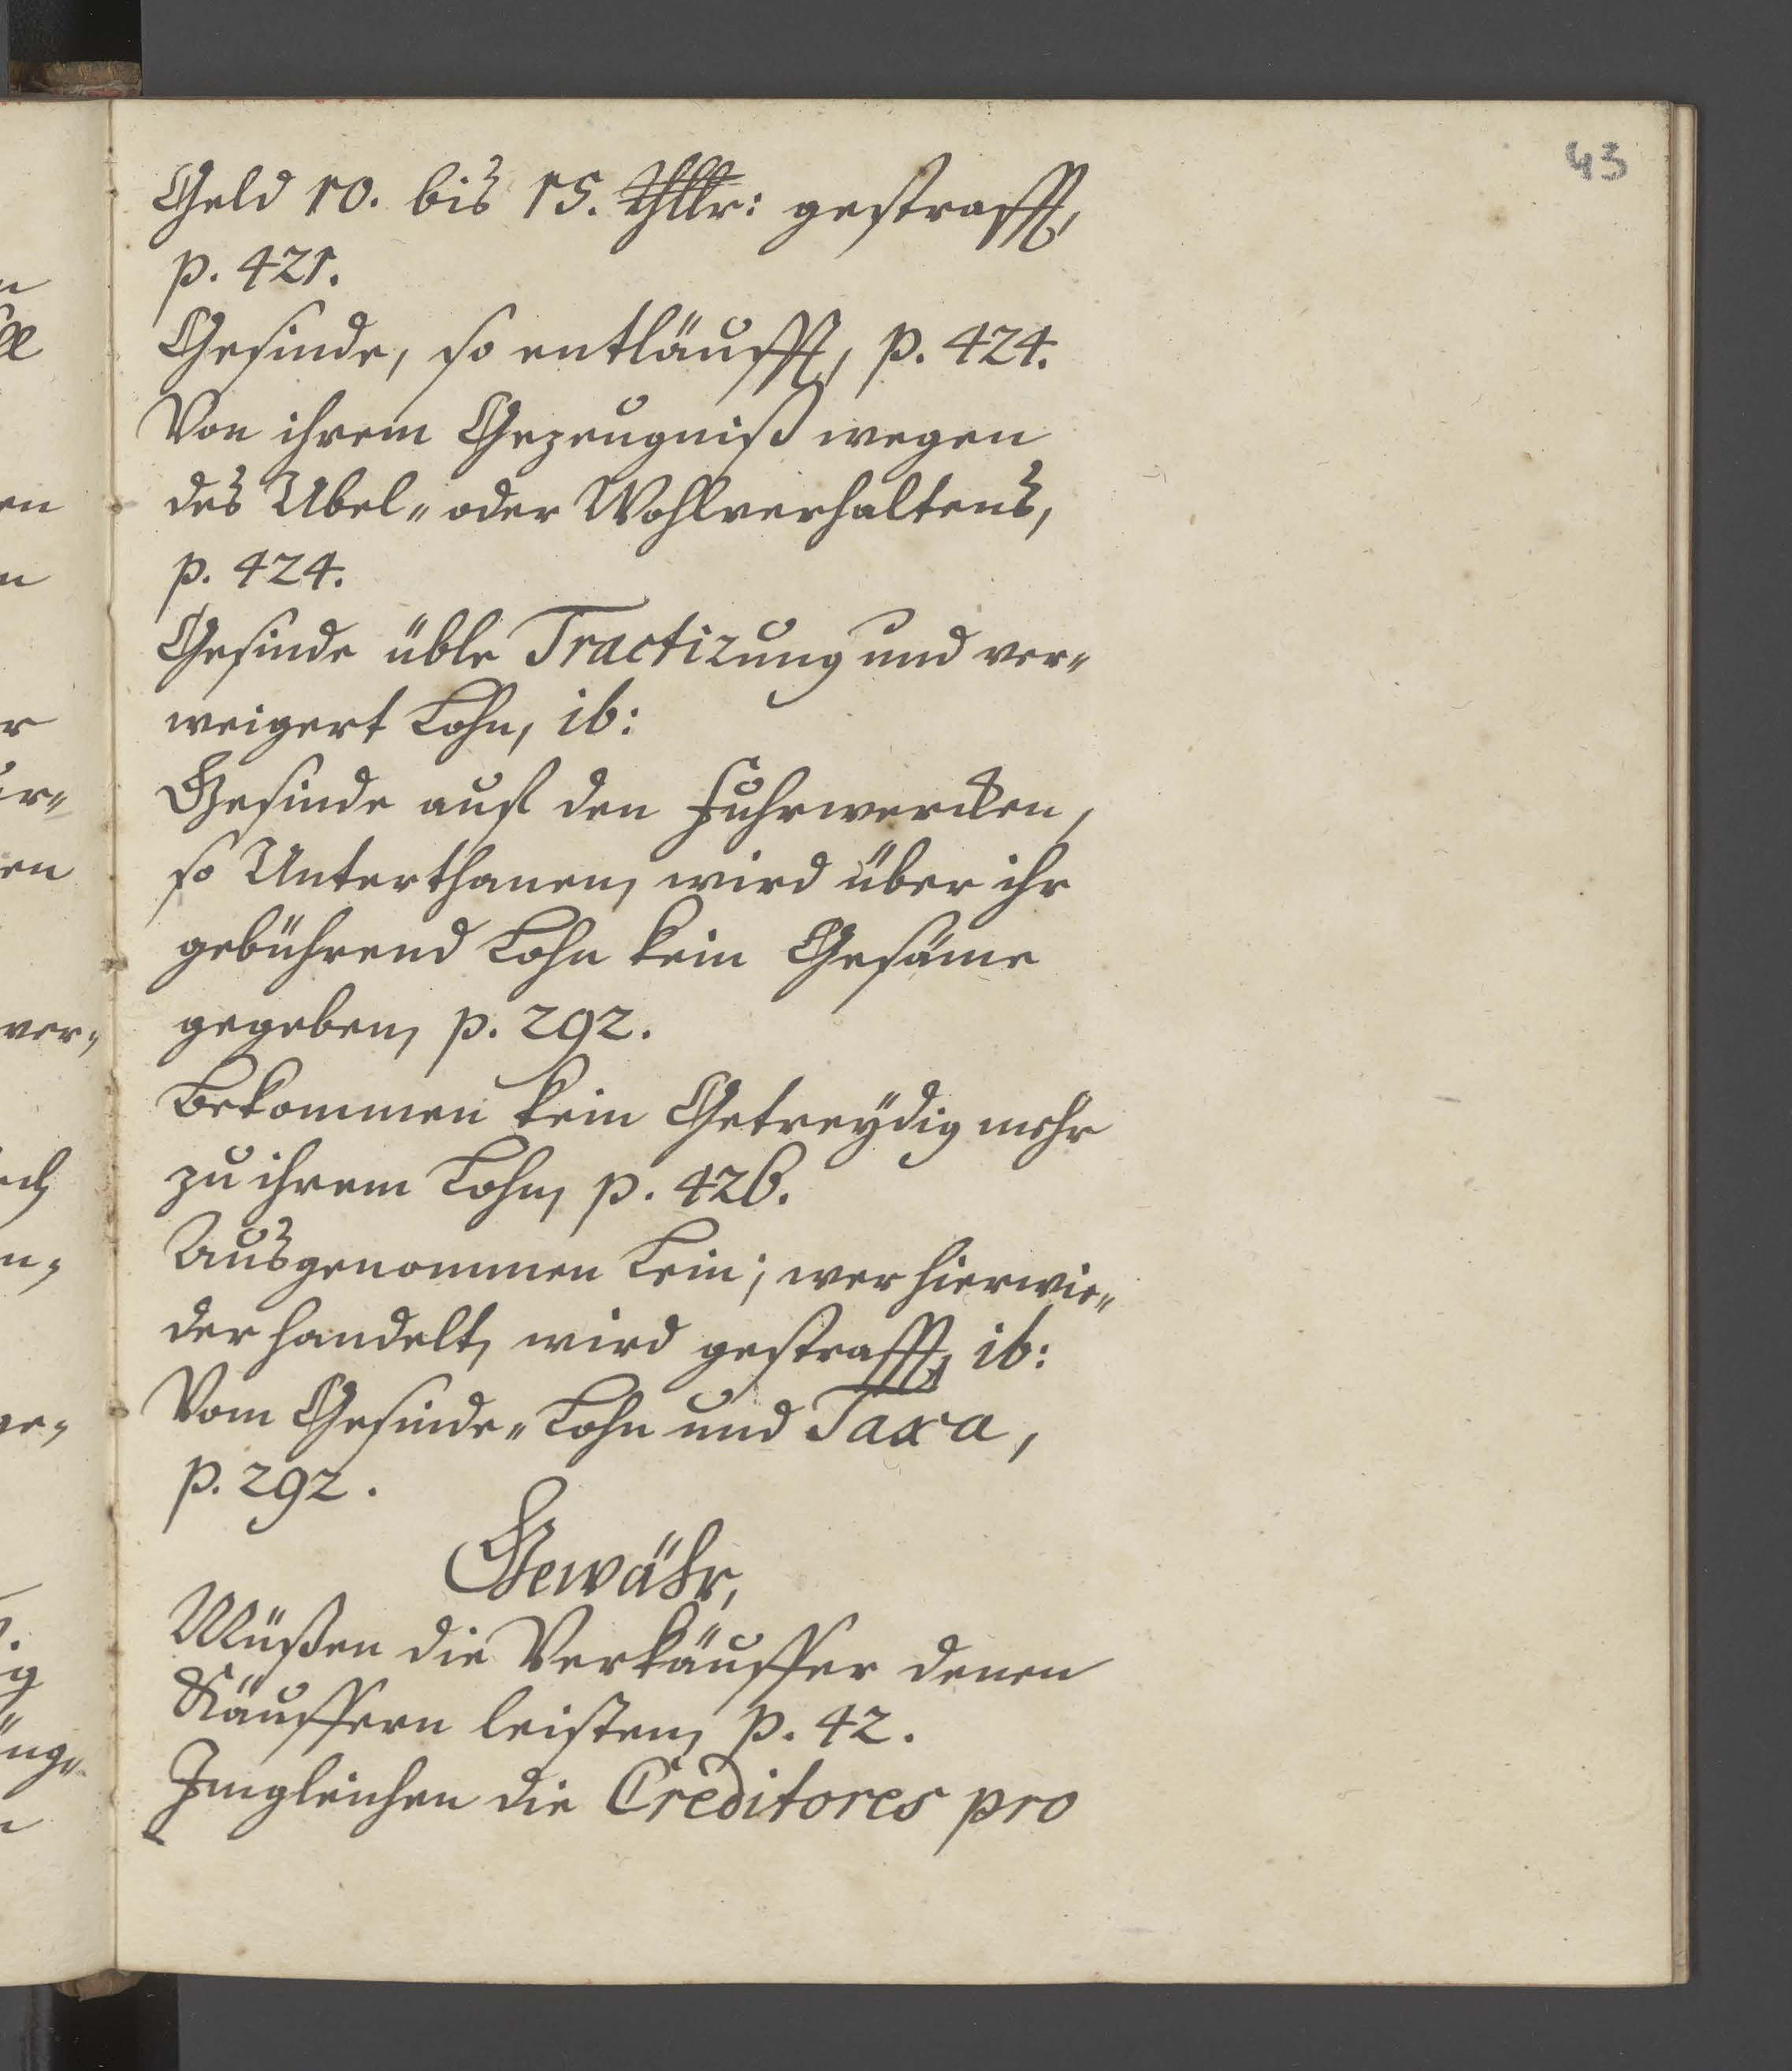 43
Geld 10. bis 15. Thllr: gestrafft,
p. 421.
Gesinde, so entläufft, p. 424.
Von ihrem Gezeugniß wegen
des Ubel- oder Wohlverhaltens,
p. 424.
Gesinde üble Tractirung und ver-
weigert Lohn, ib:
Gesinde auf den Fuhrwercken,
so Unterthanen, wird über ihr
gebührend Lohn kein Gesäme
gegeben, p. 292.
Bekommen kein Getreydig mehr
zu ihrem Lohn, p. 426.
Ausgenommen Lein; wer hierwie-
der handelt, wird gestrafft, ib:
Vom Gesinde-Lohn und Taxa,
p. 292.
Gewähr,
Müßen die Verkäuffer denen
Käuffern leisten, p. 42.
Imgleichen die Creditores pro